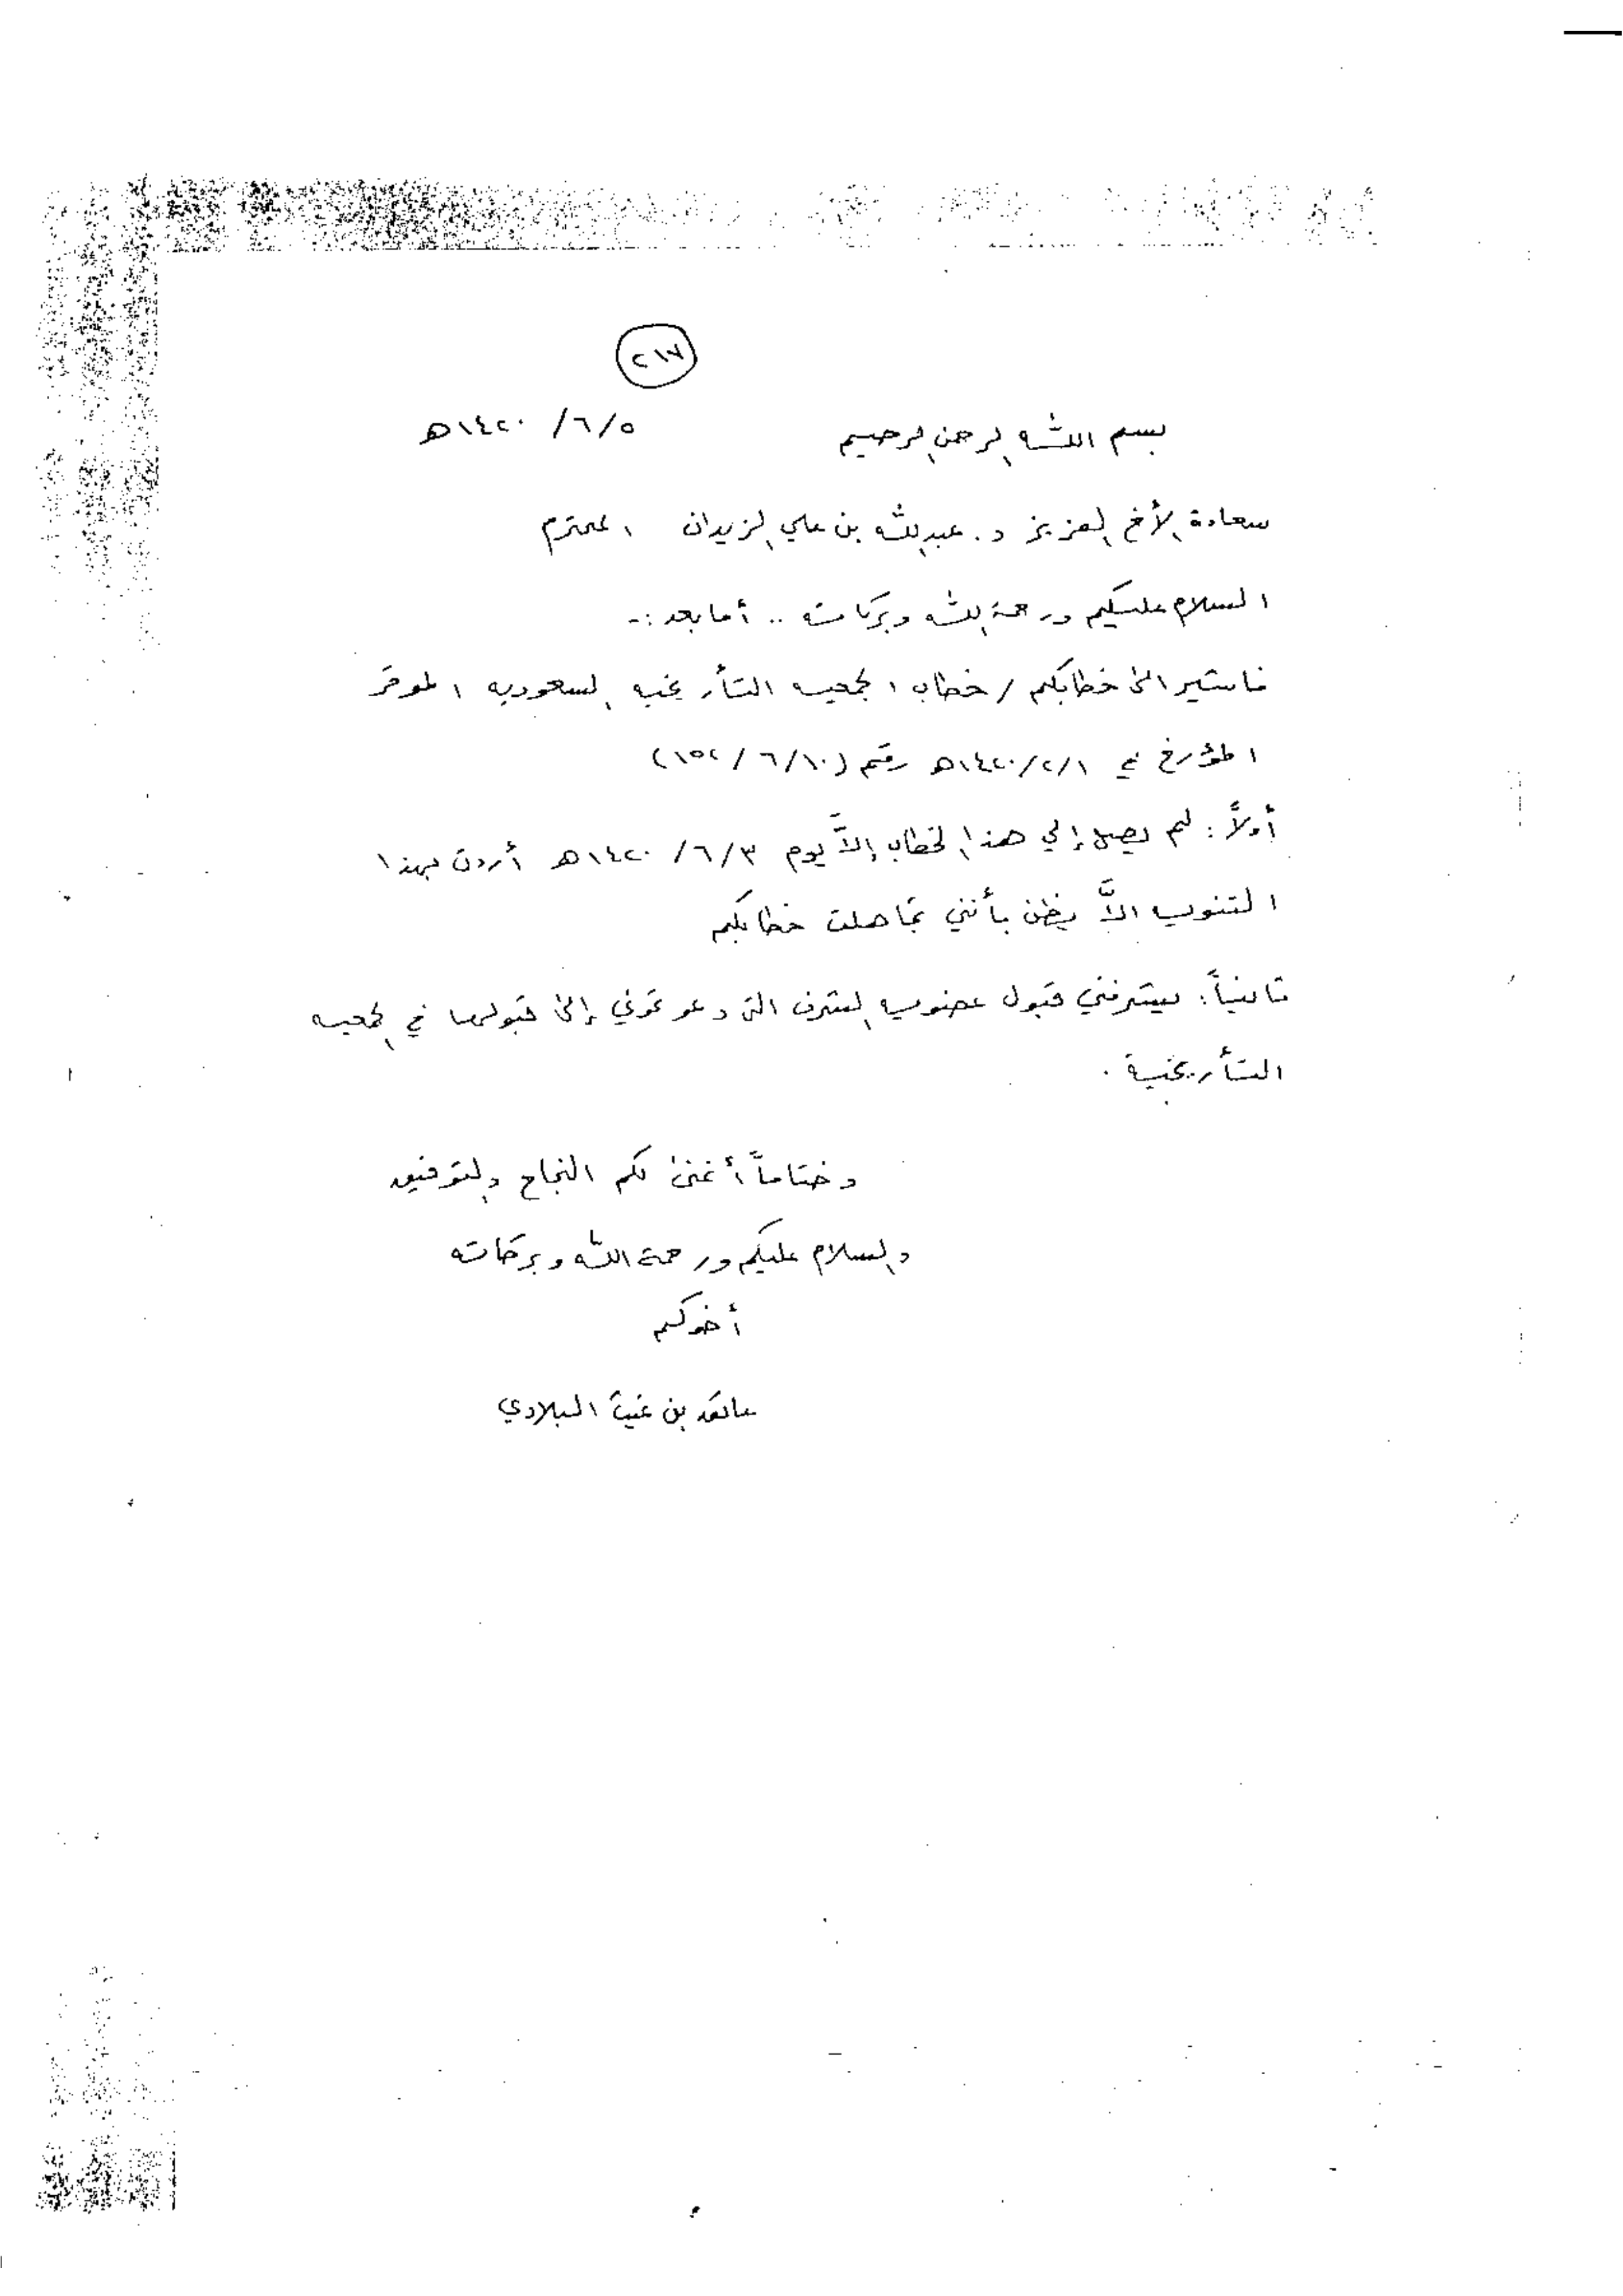 ٢١٧
بسم الله الرحمن الرحيم ٥/٦/١٤٢٠هـ
سعادة الأخ العزيز د. عبدالله بن علي الزيدان المحترم
السلام عليكم ورحمة الله وبركاته .. أما بعد :-
فاشير الى خطابكم / خطاب الجمعيه التأريخيه السعوديه الموقر
المؤرخ في ١/٢/١٤٢٠هـ رقم (١٠/٦/١٥٢)
أولاً : لم يصل إلي هذا الخطاب إلاَّ يوم ٣/٦/١٤٢٠هـ أردت بهذا
التنويه الاَّ يظن بأنني تجاهلت خطابكم
ثانياً : يشرفني قبول عضويه الشرف التي دعوتموني إلى قبولها في الجمعيه
التأريخية .
وختاماً أتمنى لكم النجاح والتوفيق
والسلام عليكم ورحمة الله وبركاته
أخوكم
عاتق بن غيث البلادي